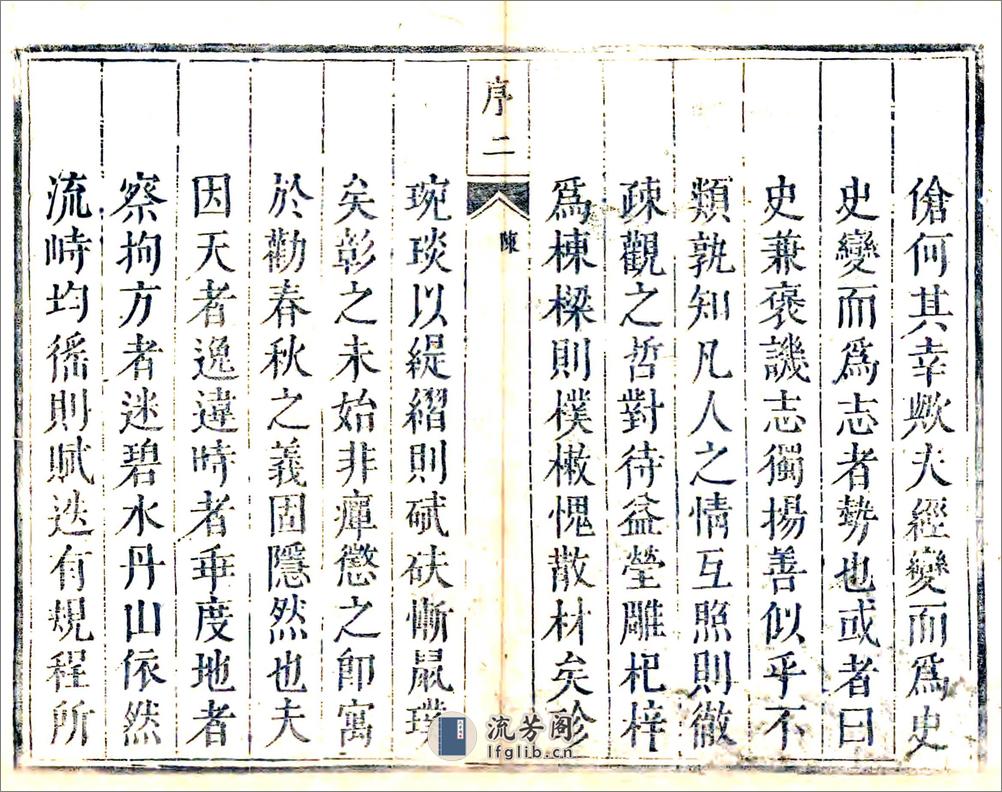 傖何其幸歟夫經變而爲史
史變而爲志者勢也或者曰
史兼褒譏志獨揚善似乎不
類孰知凡人之情互照則徹
疎觀之哲對待益瑩雕杞梓
爲棟樑則樸樕愧散材矣珍
序二
陳
琬琰以緹縚則碔砆慚鼠璞
矣彰之未始非癉懲之卽寓
於勸春秋之義固隱然也夫
因天者逸違時者乖度地者
察拘方者迷碧水丹山依然
流峙均徭則賦迭有規程所
流芳阁
lfglib.cn